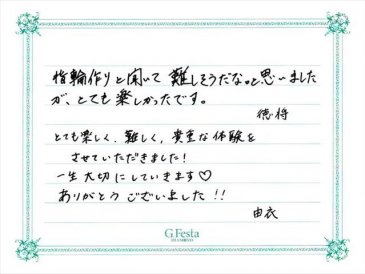 指輪作りと聞いて難しそうだな。と思いました
が、とても楽しかったです。
徳将
とても楽しく、難しく、貴重な体験を
させていただきました！
一生大切にしていきます♡
ありがとうございました！！
由衣
G.Festa
DIAMOND